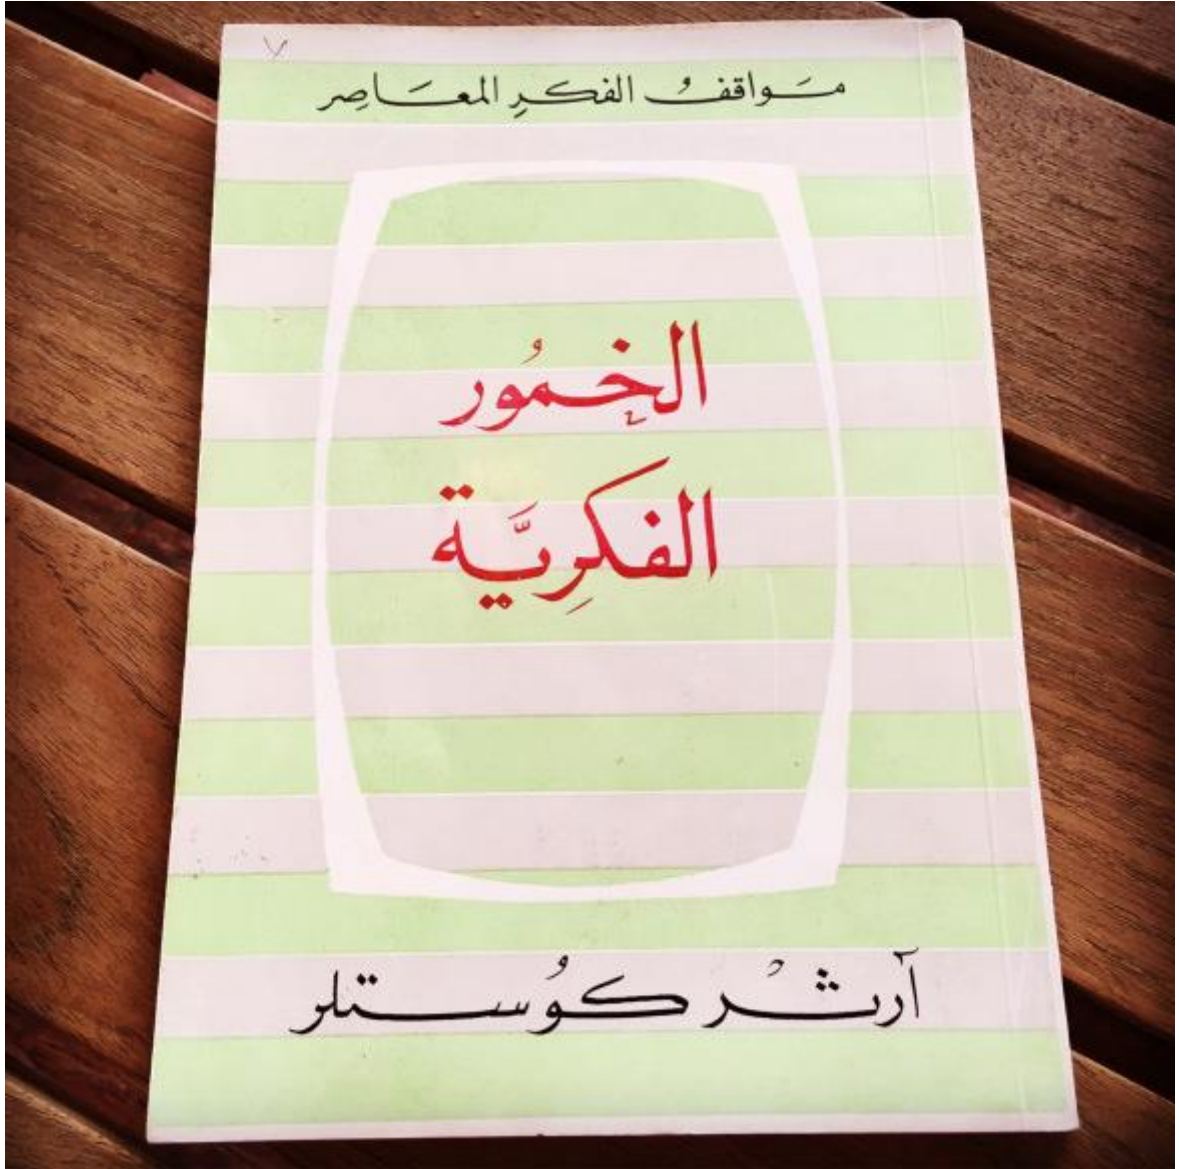 ٧
مَواقفُ الفكرِ المعَاصِر
الخمُور
الفكرِيَّة
آرثْر كوُستلر